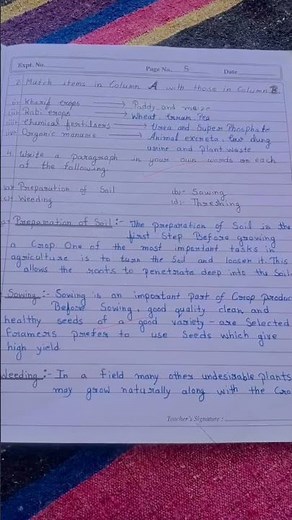 Expt. No.
Page No. 5
Date
Match items in Column A with those in Column B
i) Kharif crops → Paddy and maize
ii) Rabi crops → Wheat Gram Pea
iii) Chemical fertilisers → Urea and Super Phosphate
iv) Organic manure → Animal excreta, Cow dung
urine and plant waste
Write a Paragraph in your own words on each
of the following
Preparation of Soil
b:- Sowing
Weeding
d:- Threshing
Preparation of Soil:- The preparation of Soil is the
first Step Before growing
a Crop One of the most important tasks in
agriculture is to turn the Soil and loosen it. This
allows the roots to penetrate deep into the Soil
Sowing:- Sowing is an important part of Crop produc
Before Sowing, good quality clean and
healthy seeds of a good variety - are Selected
Framers prefer to use Seeds which give
high yield
Weeding:- In a field many other undesirable plants
may grow naturally along with the Cro
Teacher's Signature